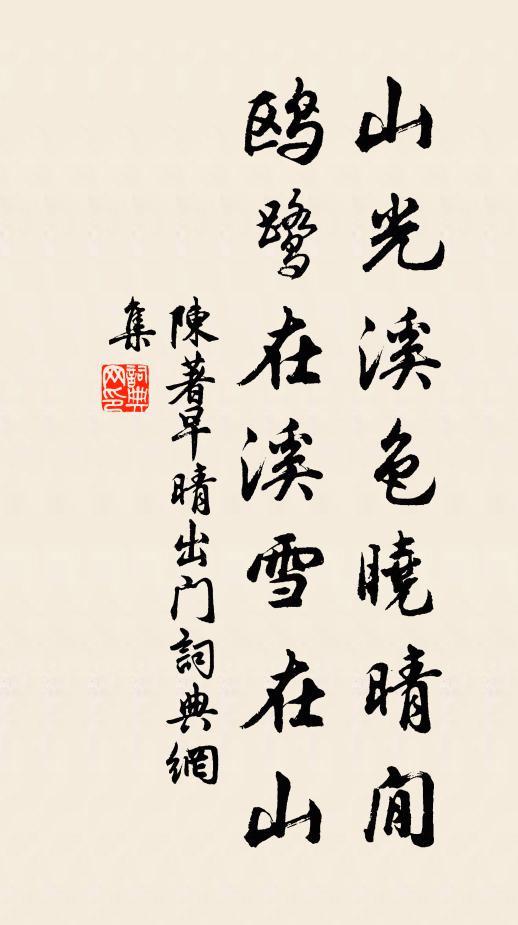 山光溪色曉晴間
鸥鹭在溪雪在山
陳著早晴出门詞典網
集
詞典网印